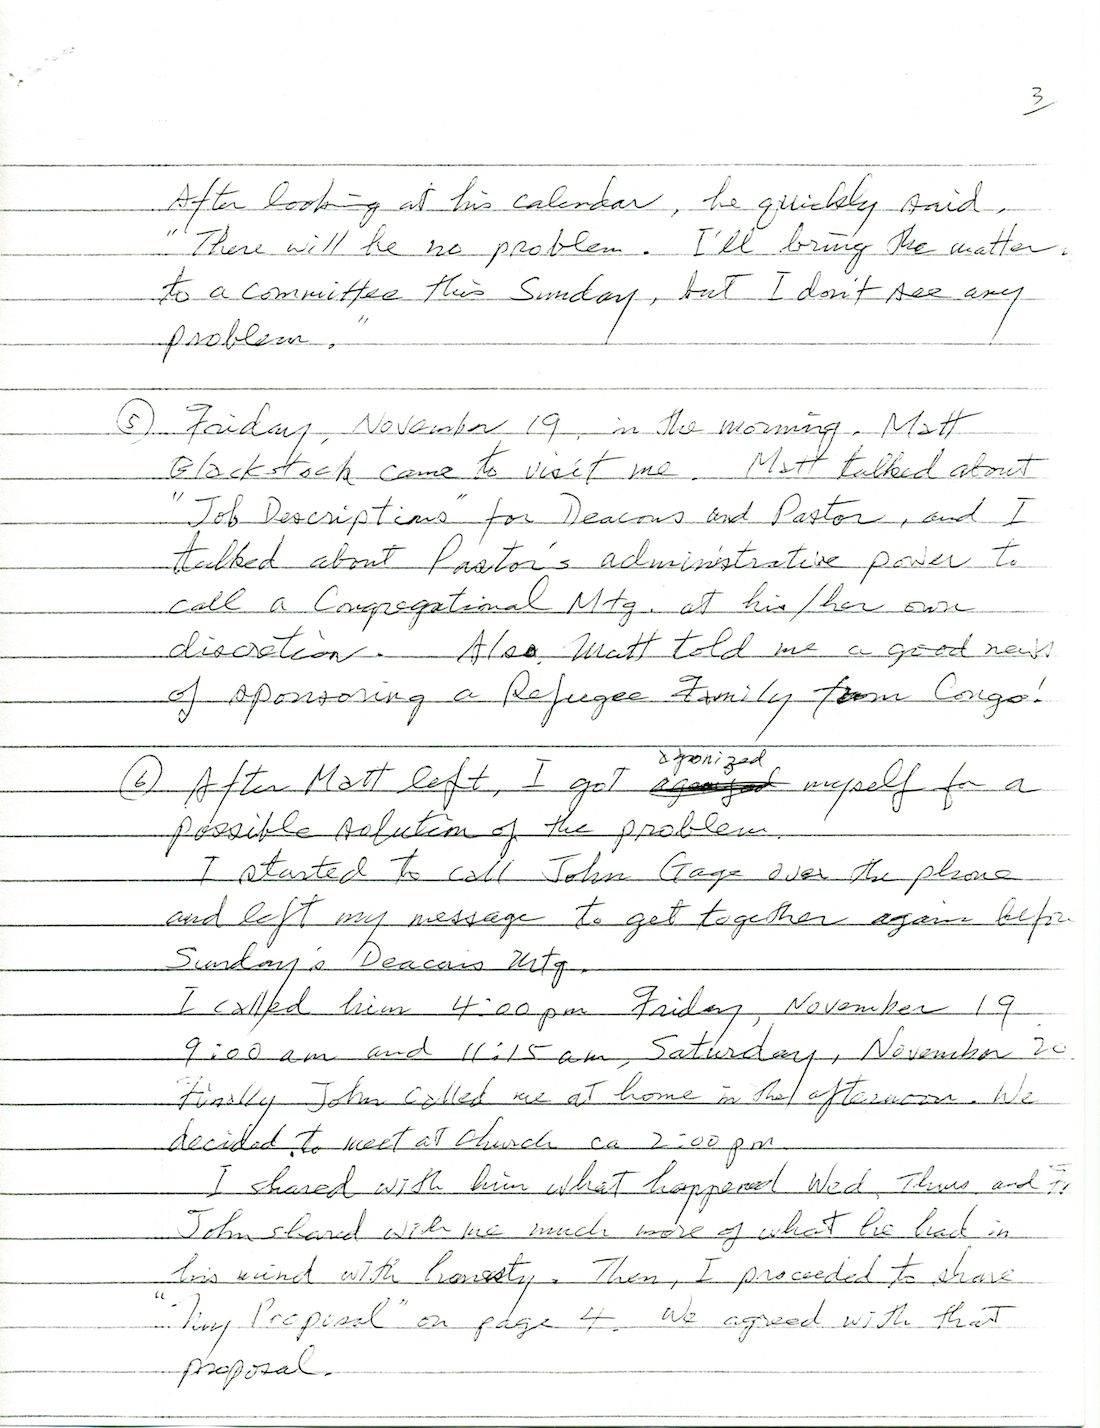 3
After looking at his calendar, he quickly said,
"There will be no problem. I'll bring the matter
to a committee this Sunday, but I don't see any
problem."
⑤ Friday, November 19, in the morning. Matt
Blackstock came to visit me. Matt talked about
"Job Descriptions" for Deacons and Pastor, and I
talked about Pastor's administrative power to
call a Congregational Mtg. at his/her own
discretion. Also, Matt told me a good news
of sponsoring a Refugee Family from Congo!
agonized
⑥ After Matt left, I got agonized myself for a
possible solution of the problem.
I started to call John Gage over the phone
and left my message to get together again before
Sunday's Deacons Mtg.
I called him 4:00 pm Friday, November 19
9:00 am and 11:15 am, Saturday, November 20
Finally John called me at home in the afternoon. We
decided to meet at church ca 2:00 pm.
I shared with him what happened Wed, Thurs and Fri
John shared with me much more of what he had in
his mind with honesty. Then, I proceeded to share
"My Proposal" on page 4. We agreed with that
proposal.